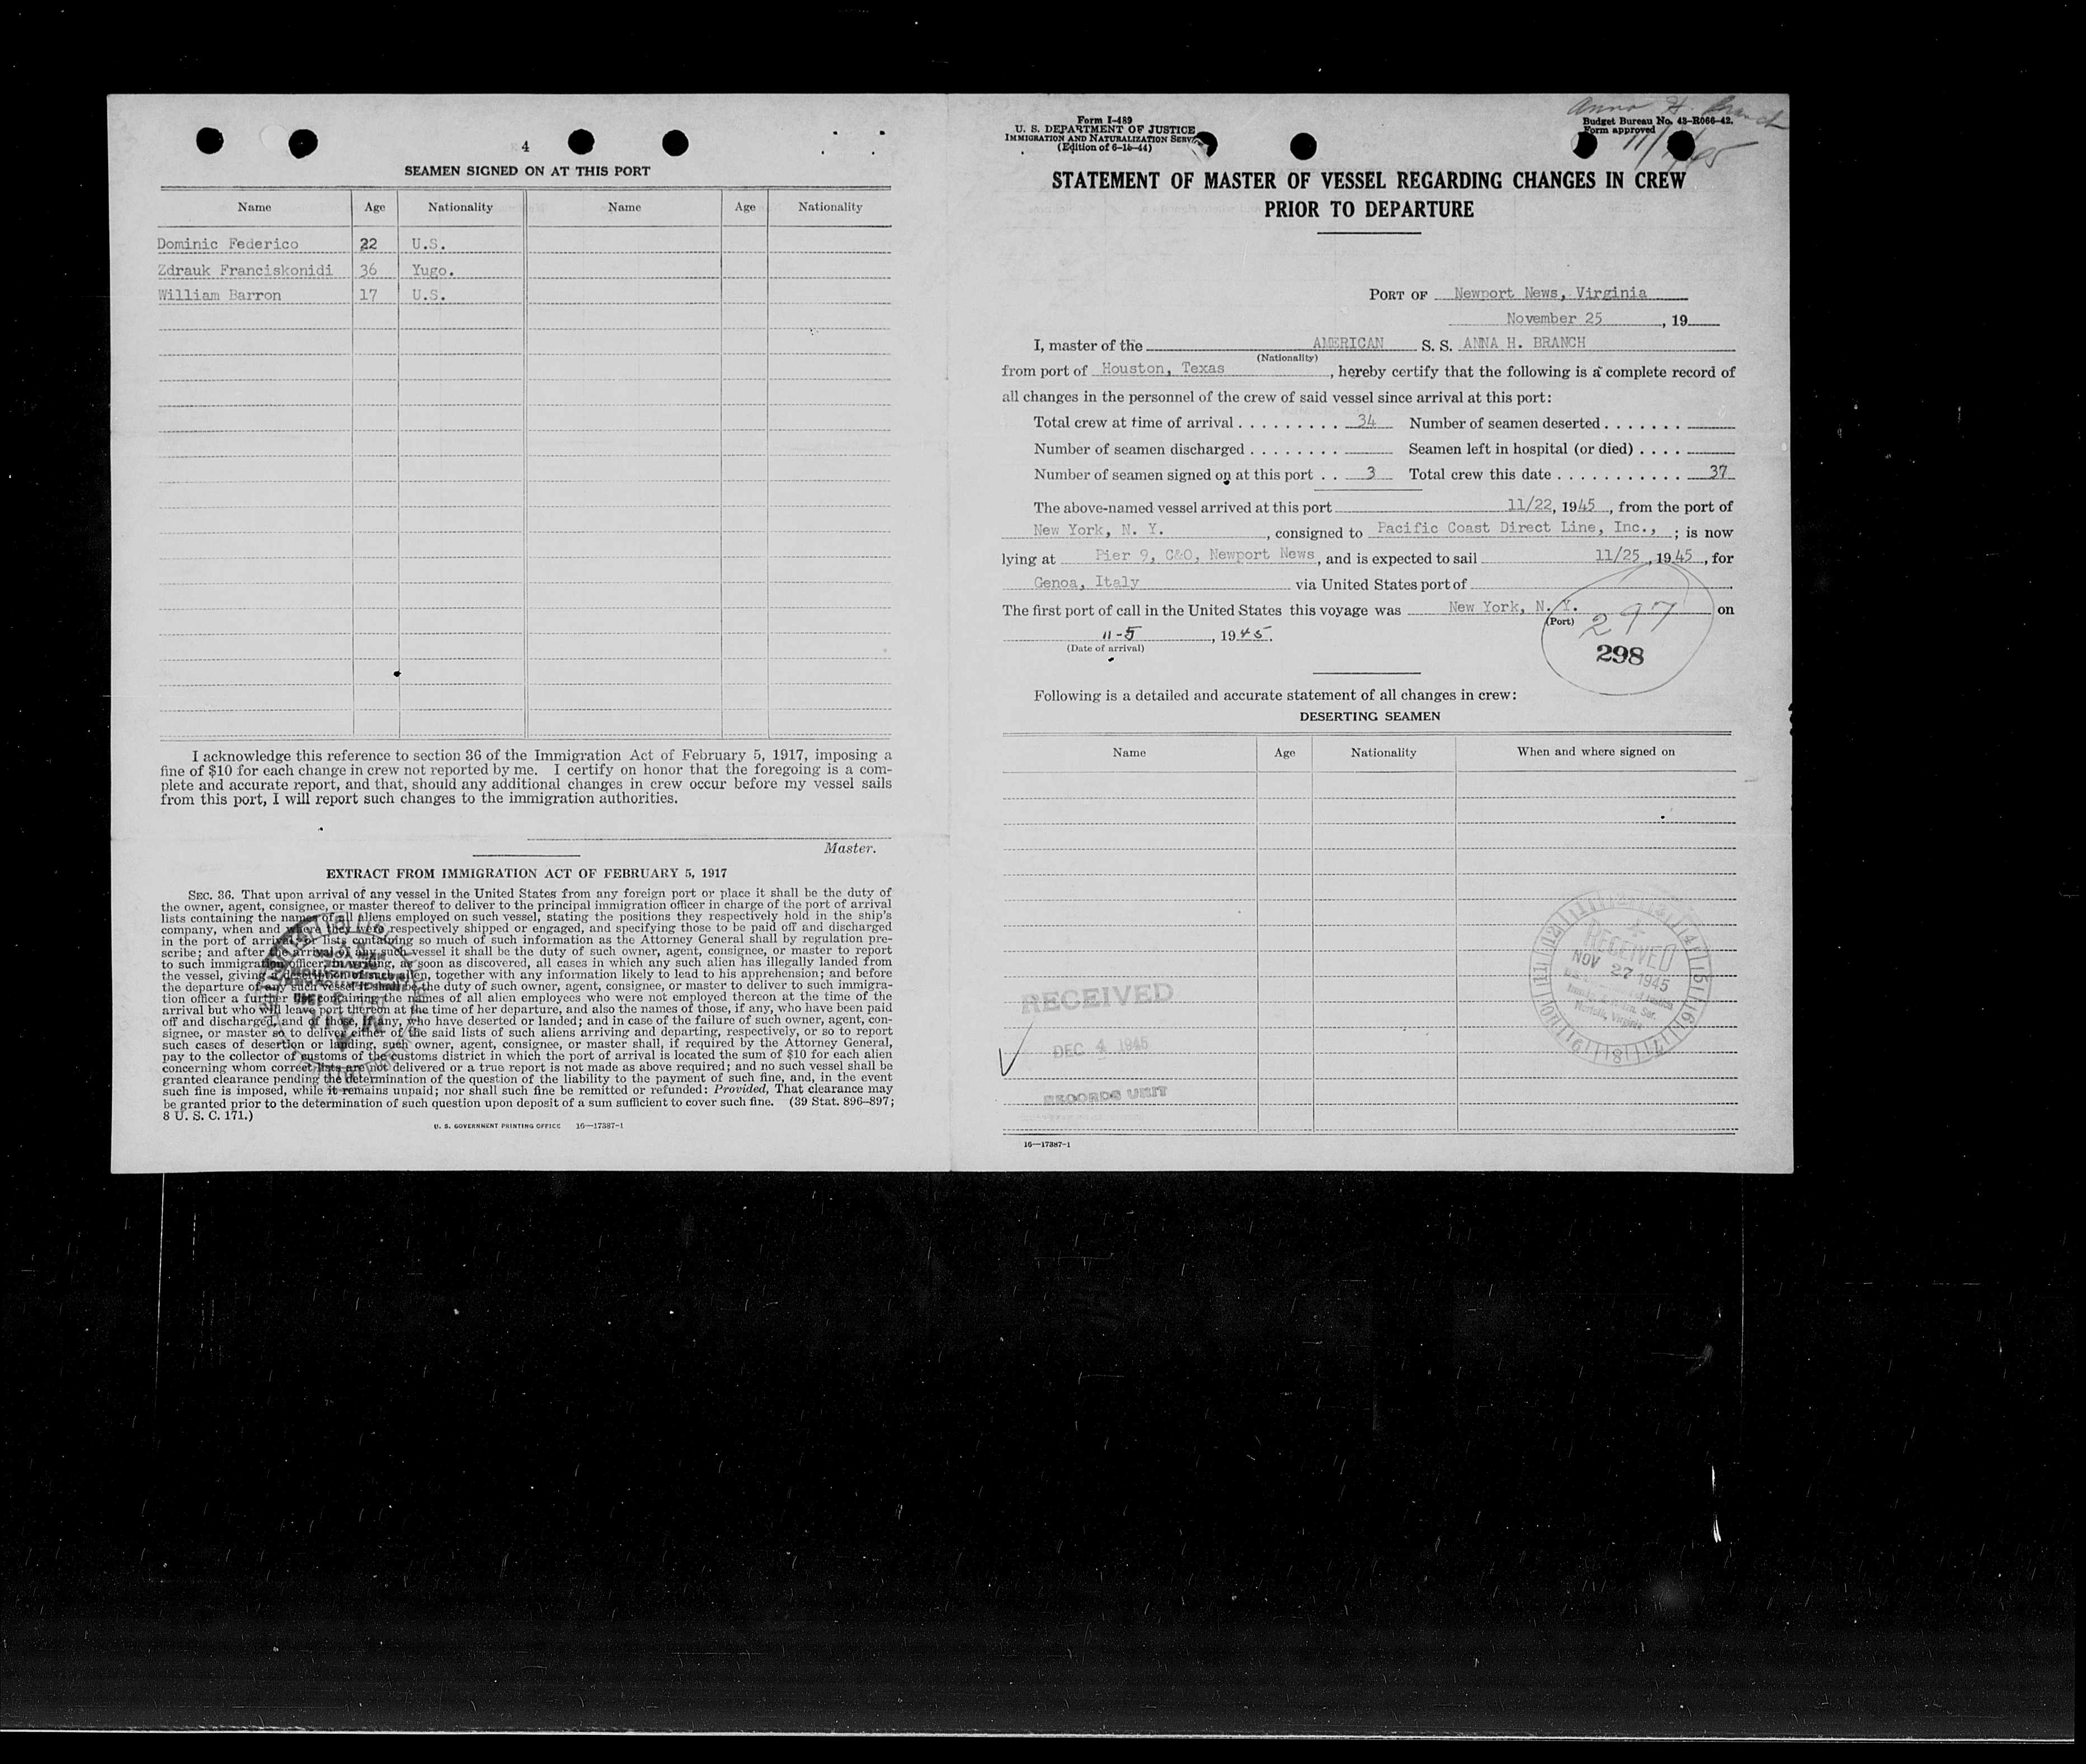 4
SEAMEN SIGNED ON AT THIS PORT
Name Age Nationality Name Age Nationality
Dominic Federico 22 U.S.
Zdrauk Franciskonidi 36 Yugo.
William Barron 17 U.S.
I acknowledge this reference to section 36 of the Immigration Act of February 5, 1917, imposing a
fine of $10 for each change in crew not reported by me. I certify on honor that the foregoing is a com-
plete and accurate report, and that, should any additional changes in crew occur before my vessel sails
from this port, I will report such changes to the immigration authorities.
Master.
EXTRACT FROM IMMIGRATION ACT OF FEBRUARY 5, 1917
SEC. 36. That upon arrival of any vessel in the United States from any foreign port or place it shall be the duty of
the owner, agent, consignee, or master thereof to deliver to the principal immigration officer in charge of the port of arrival
lists containing the names of all aliens employed on such vessel, stating the positions they respectively hold in the ship's
company, when and where they were respectively shipped or engaged, and specifying those to be paid off and discharged
in the port of arrival; or lists containing so much of such information as the Attorney General shall by regulation pre-
scribe; and after the arrival of any such vessel it shall be the duty of such owner, agent, consignee, or master to report
to such immigration officer, in writing, as soon as discovered, all cases in which any such alien has illegally landed from
the vessel, giving a description of such alien, together with any information likely to lead to his apprehension; and before
the departure of any such vessel it shall be the duty of such owner, agent, consignee, or master to deliver to such immigra-
tion officer a further list containing the names of all alien employees who were not employed thereon at the time of the
arrival but who will leave port thereon at the time of her departure, and also the names of those, if any, who have been paid
off and discharged, and of those, if any, who have deserted or landed; and in case of the failure of such owner, agent, con-
signee, or master so to deliver either of the said lists of such aliens arriving and departing, respectively, or so to report
such cases of desertion or landing, such owner, agent, consignee, or master shall, if required by the Attorney General,
pay to the collector of customs of the customs district in which the port of arrival is located the sum of $10 for each alien
concerning whom correct lists are not delivered or a true report is not made as above required; and no such vessel shall be
granted clearance pending the determination of the question of the liability to the payment of such fine, and, in the event
such fine is imposed, while it remains unpaid; nor shall such fine be remitted or refunded: Provided, That clearance may
be granted prior to the determination of such question upon deposit of a sum sufficient to cover such fine. (39 Stat. 896–897;
8 U. S. C. 171.)
U. S. GOVERNMENT PRINTING OFFICE 16—17387-1
Anna H. Branch
Form I-489
U. S. DEPARTMENT OF JUSTICE
IMMIGRATION AND NATURALIZATION
(Edition of 6-15-44)
Budget Bureau No. 43-R066-42.
Form approved
STATEMENT OF MASTER OF VESSEL REGARDING CHANGES IN CREW
PRIOR TO DEPARTURE
PORT OF Newport News, Virginia
November 25, 19
I, master of the AMERICAN S. S. ANNA H. BRANCH
(Nationality)
from port of Houston, Texas, hereby certify that the following is a complete record of
all changes in the personnel of the crew of said vessel since arrival at this port:
Total crew at time of arrival 34 Number of seamen deserted
Number of seamen discharged Seamen left in hospital (or died)
Number of seamen signed on at this port 3 Total crew this date 37
The above-named vessel arrived at this port 11/22, 1945, from the port of
New York, N. Y., consigned to Pacific Coast Direct Line, Inc., ; is now
lying at Pier 9, C&O, Newport News, and is expected to sail 11/25, 1945, for
Genoa, Italy via United States port of
The first port of call in the United States this voyage was New York, N. Y. on
(Port)
297
11-5, 1945.
(Date of arrival)
298
Following is a detailed and accurate statement of all changes in crew:
DESERTING SEAMEN
Name Age Nationality When and where signed on
RECEIVED
NOV 27 1945
Norfolk, Virginia
RECEIVED
DEC 4 1945
RECORDS UNIT
16—17387-1